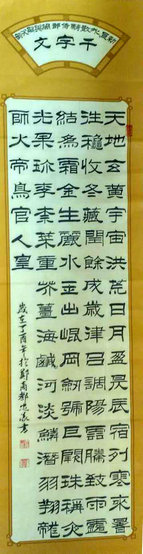 千字文
天地玄黃宇宙洪荒日月盈昃辰宿列張寒來暑
往秋收冬藏閏餘成歲律呂調陽雲騰致雨露
結為霜金生麗水玉出崑岡劍號巨闕珠稱夜
光果珍李柰菜重芥薑海鹹河淡鱗潛羽翔龍
師火帝鳥官人皇
歲在丁酉年於鄭商都 書